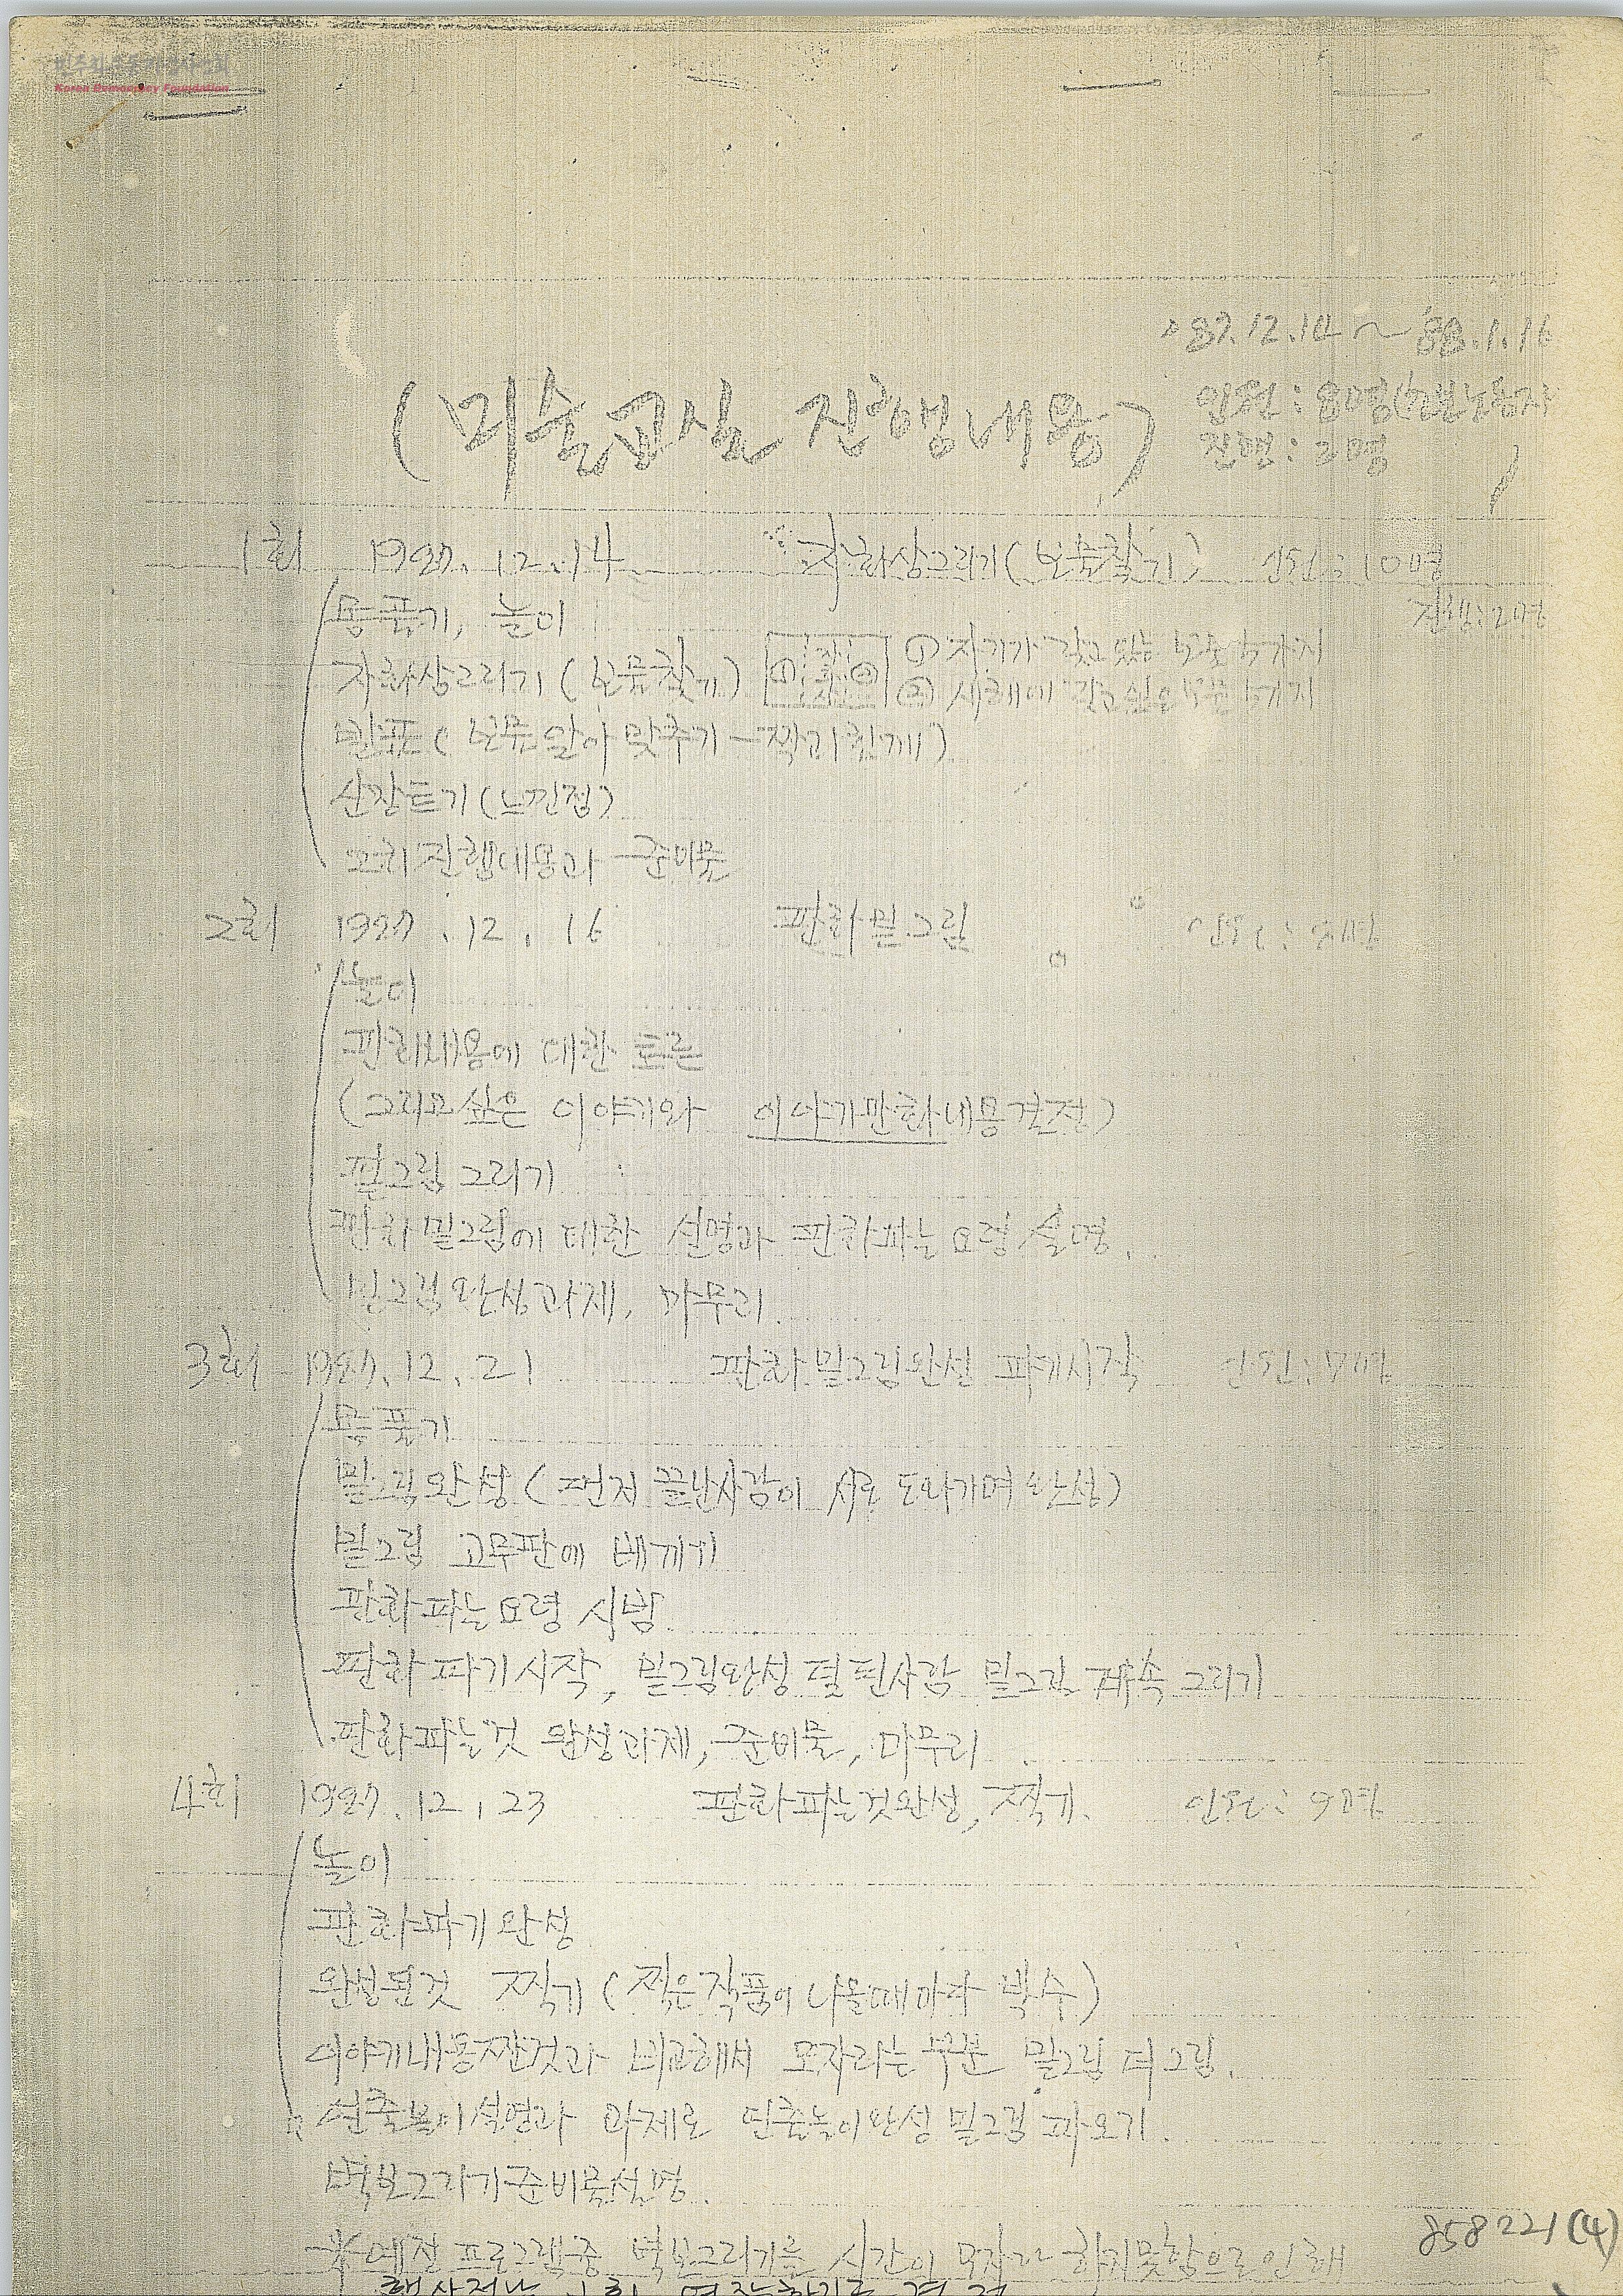 민주화운동기념사업회
Korea Democracy Foundation
87.12.14 ~ 88.1.16
(미술교실 진행내용)
인원: 명
진행: 2명
1회 1987.12.14 자화상그리기(보물찾기) 인원: 10명
진행: 2명
몸풀기, 놀이
자화상그리기(보물찾기) ① ② ① 자기가 갖고 있는 보물 가지
② 새해에 갖고 싶은 보물 가지
발표(보물 알아 맞추기 - 찍기 함께)
산장트기(느낀점)
진행내용과 준비물
2회 1987.12.16 판화밑그림 인원:
놀이
판화내용에 대한 토론
(그리고 싶은 이야기와 이야기판화 내용결정)
밑그림 그리기
판화밑그림에 대한 설명과 판화파는 요령 설명.
밑그림완성과제, 마무리.
3회 1987.12.21 판화밑그림완성 파기시작 인원: 7명
몸풀기
밑그림 완성(먼저 끝난사람이 서로 도와가며 완성)
밑그림 고무판에 베끼기
판화 파는요령 시범
판화 파기시작, 밑그림완성 덜 된사람 밑그림 계속 그리기
판화파는것 완성과제, 준비물, 마무리
4회 1987.12.23 판화파는것완성, 찍기. 인원: 9명
놀이
판화파기완성
완성된것 찍기(찍은작품이 나올때마다 박수)
이야기내용짠것과 비교해서 모자라는 부분 밑그림 더그림.
연출놀이설명과 과제로 연출놀이완성 밑그림 파오기.
벽보그리기준비물설명.
*예정프로그램중 벽보그리기를 시간이 모자라 하지못함으로 인해
행사전날 1회 연장하기로 결정
858221(4)